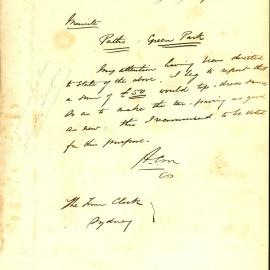 Minute
Paths. Green Park
My attention having been directed
to state of the above. I beg to report that
a sum of £50 would top-dress same
so as to make the tar-paving as good
as new. This I recommend to be voted
for this purpose.
The Town Clerk
Sydney